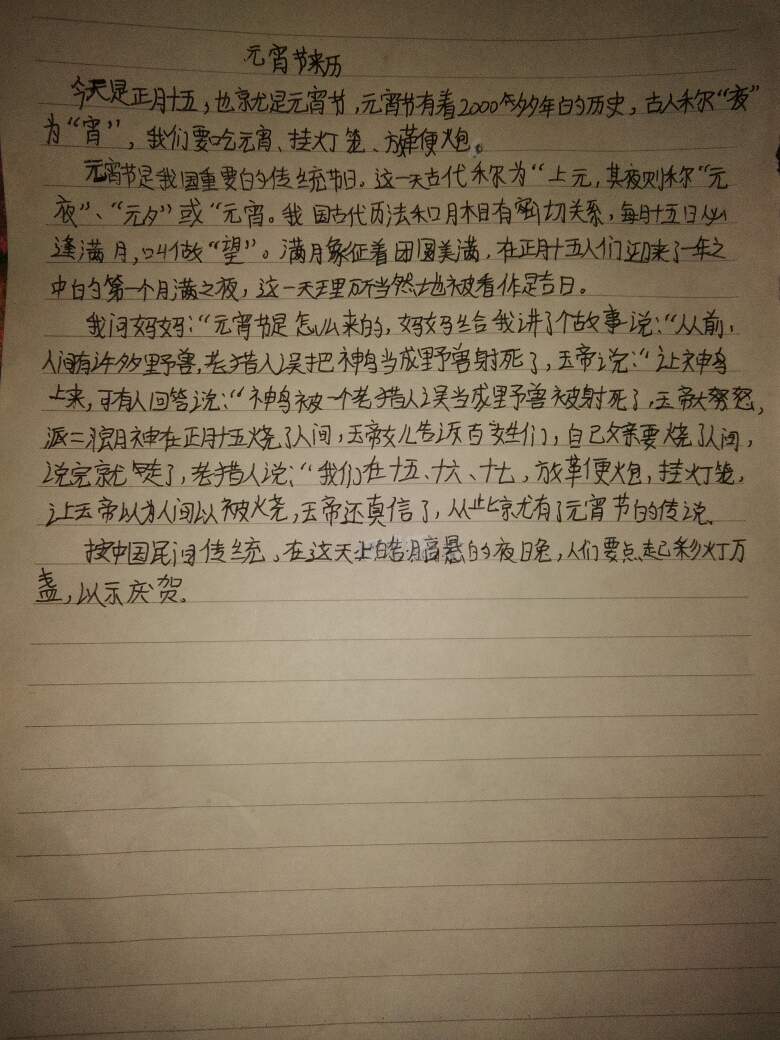 元宵节来历
今天是正月十五,也就是元宵节,元宵节有着2000多年的历史,古人称"夜"
为"宵",我们要吃元宵、挂灯笼、放鞭炮。
元宵节是我国重要的传统节日。这一天古代称为"上元,其夜则称"元
夜"、"元夕"或"元宵。我国古代历法和月相有密切关系,每月十五日必
逢满月,叫做"望"。满月象征着团圆美满,在正月十五人们迎来了一年之
中的第一个月满之夜,这一天理所当然地被看作是吉日。
我问妈妈:"元宵节是怎么来的,妈妈给我讲了个故事说:"从前,
人间有许多野兽,老猎人误把神鸟当成野兽射死了,玉帝说:"让神鸟
上来,可有人回答说:"神鸟被一个老猎人误当成野兽被射死了,玉帝大努怒,
派二狼神在正月十五烧了人间,玉帝女儿告诉百姓们,自己父亲要烧了人间,
说完就走了,老猎人说:"我们在十五、十六、十七,放鞭炮,挂灯笼,
让玉帝以为人间以被火烧,玉帝还真信了,从此就有了元宵节的传说、
按中国民间传统、在这天上皓月高悬的夜晚,人们要点起彩灯万
盏,以示庆贺。